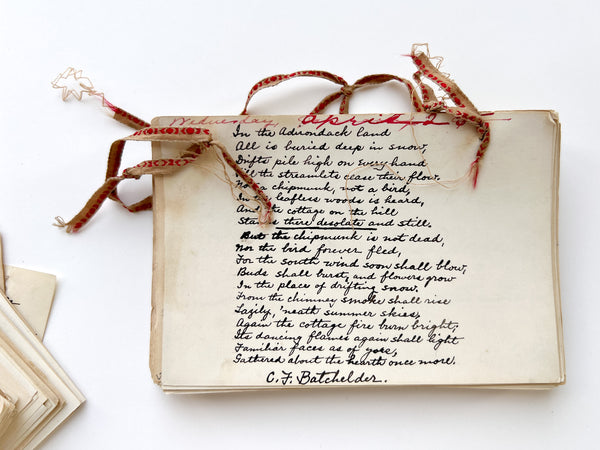 Wednesday April 25
In the Adirondack land
All is buried deep in snow,
Drifts pile high on every hand
the streamlets cease their flow.
Not a chipmunk, not a bird,
In the leafless woods is heard,
And the cottage on the hill
Stands there desolate and still.
But the chipmunk is not dead,
Nor the bird forever fled,
For the south wind soon shall blow,
Buds shall burst, and flowers grow
In the place of drifting snow.
From the chimney smoke shall rise
Lazily, 'neath summer skies,
Again the cottage fire burn bright;
Its dancing flames again shall light
Familiar faces as of yore,
Gathered about the hearth once more.
C. F. Batchelder.